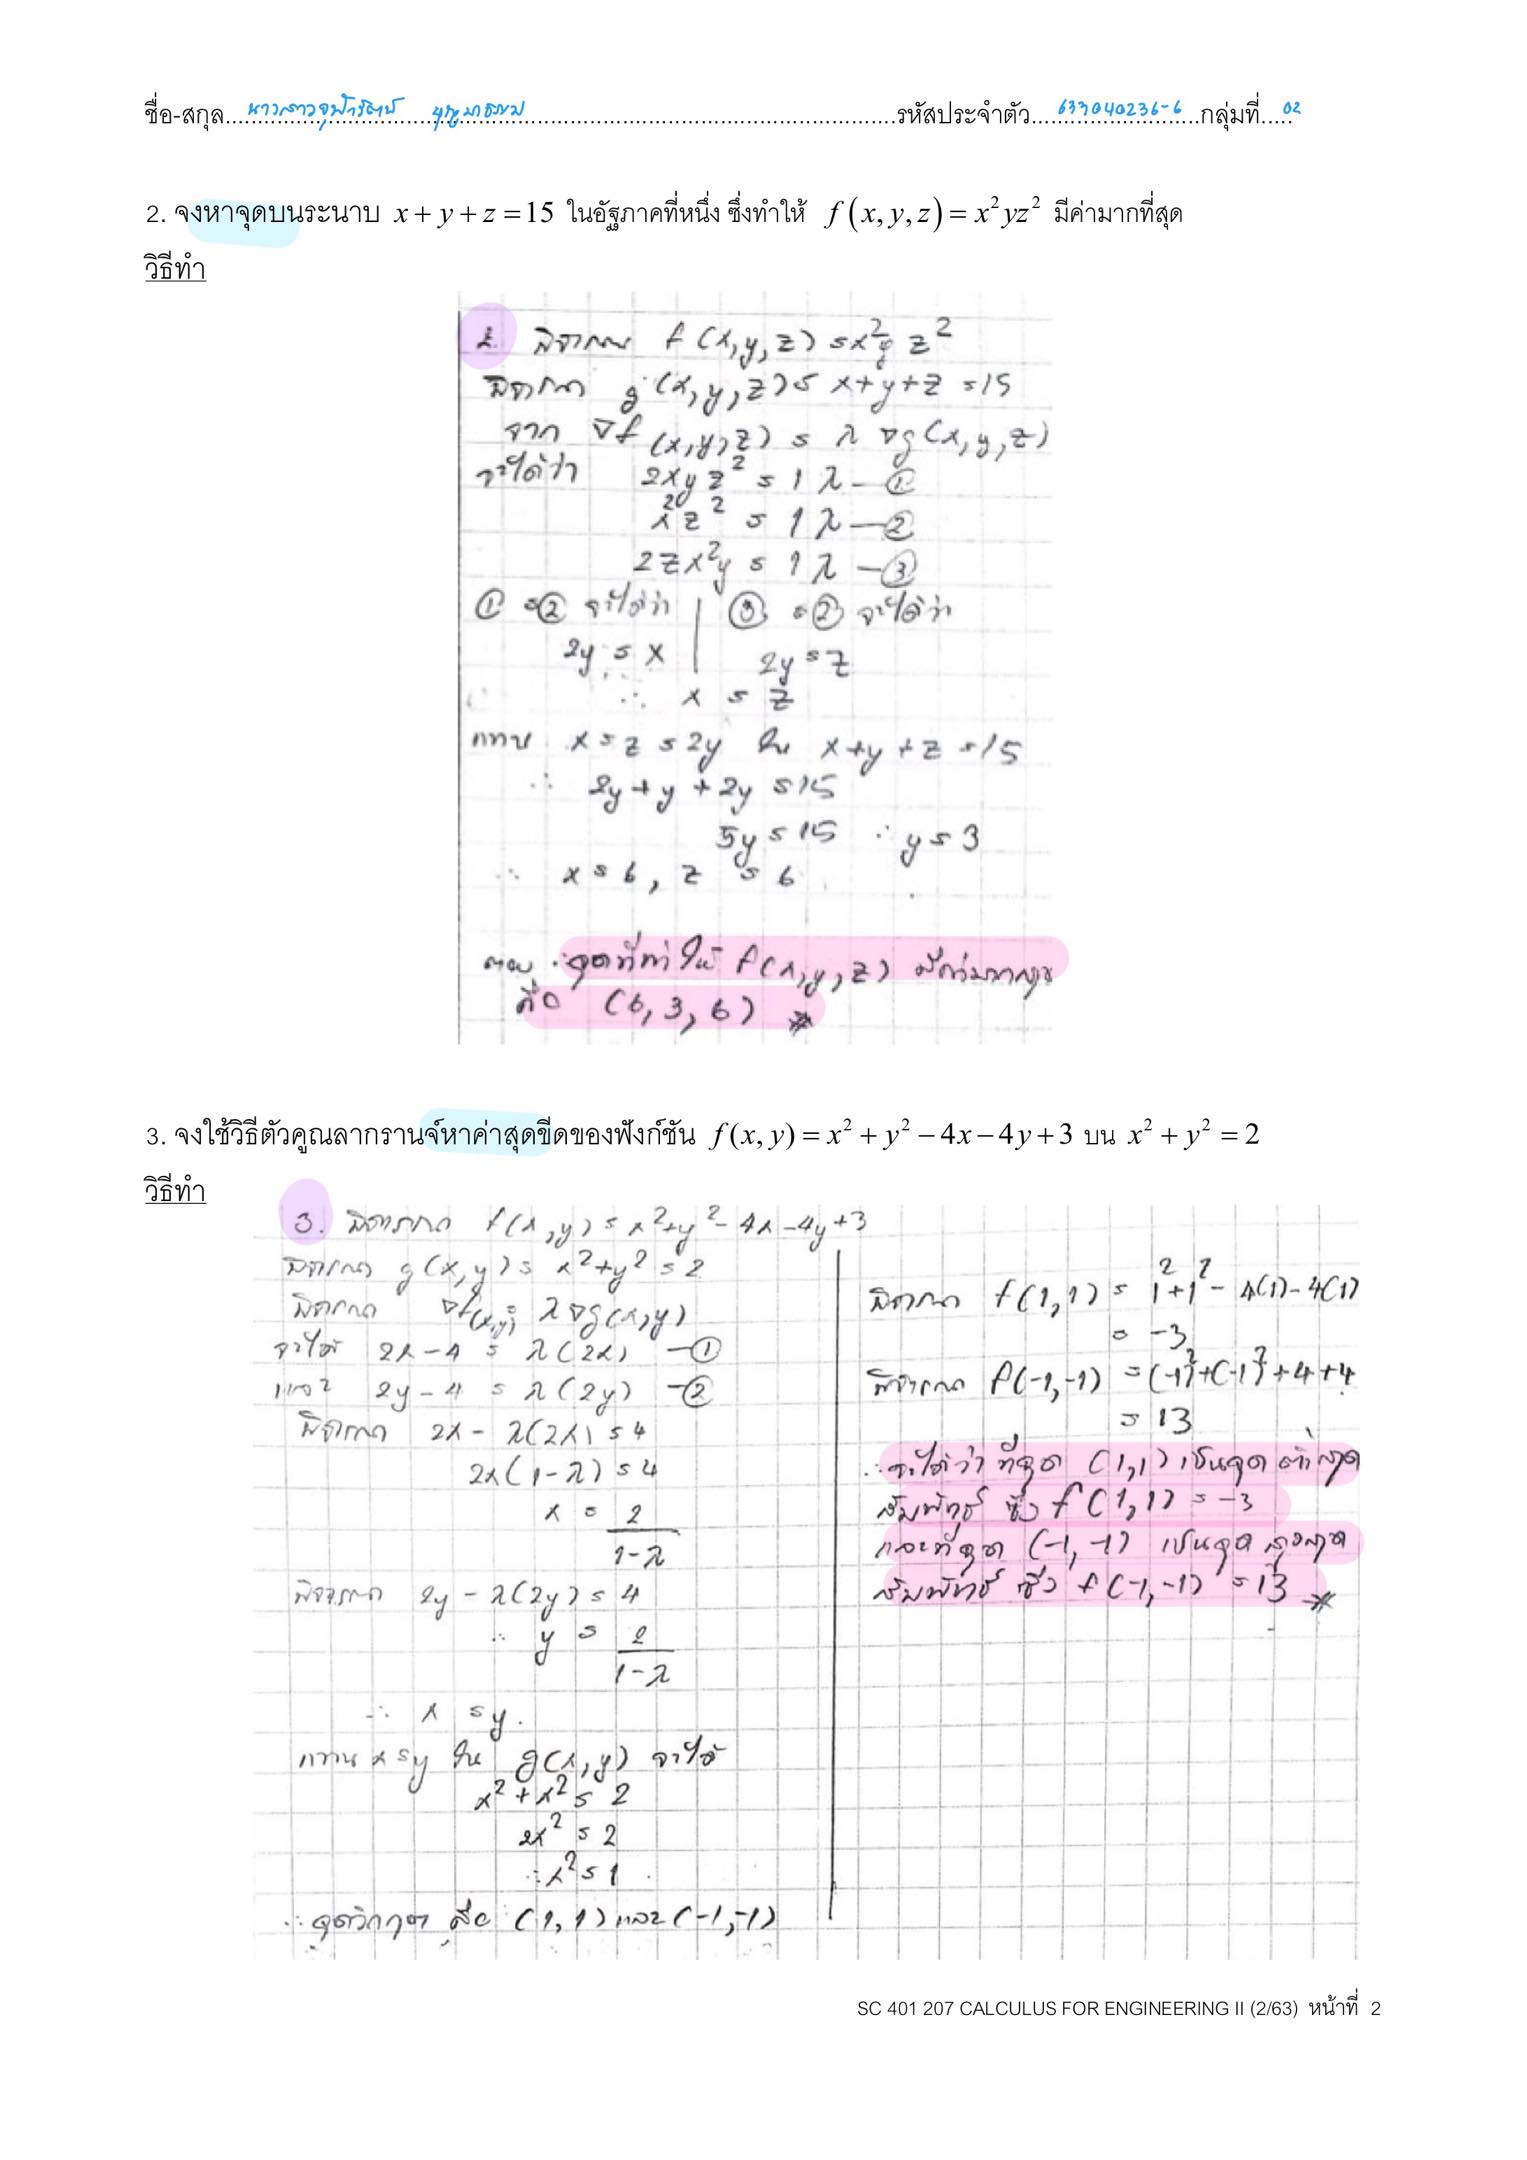 ชื่อ-สกุล..........รหัสประจำตัว...633040236-6...กลุ่มที่...02
2. จงหาจุดบนระนาบ x + y + z = 15 ในอัฐภาคที่หนึ่ง ซึ่งทำให้ f(x, y, z) = x²yz² มีค่ามากที่สุด
วิธีทำ
2. พิจารณา f(x,y,z) = x²y z²
พิจารณา g(x,y,z) = x+y+z = 15
จาก ∇f(x,y,z) = λ ∇g(x,y,z)
จะได้ว่า 2xyz² = 1λ — ①
x²z² = 1λ — ②
2zx²y = 1λ — ③
① = ② จะได้ว่า | ③ = ② จะได้ว่า
2y = x | 2y = z
∴ x = z
แทน x = z = 2y ใน x+y+z = 15
∴ 2y + y + 2y = 15
5y = 15 ∴ y = 3
∴ x = 6, z = 6
ตอบ ∴ จุดที่ทำให้ f(x,y,z) มีค่ามากสุด
คือ (6, 3, 6) #
3. จงใช้วิธีตัวคูณลากรานจ์หาค่าสุดขีดของฟังก์ชัน f(x, y) = x² + y² − 4x − 4y + 3 บน x² + y² = 2
วิธีทำ
3. พิจารณา f(x,y) = x²+y²−4x−4y+3
พิจารณา g(x,y) = x²+y² = 2
พิจารณา ∇f(x,y) = λ∇g(x,y)
จะได้ 2x−4 = λ(2x) —①
และ 2y−4 = λ(2y) —②
พิจารณา 2x − λ(2x) = 4
2x(1−λ) = 4
x = 2/(1−λ)
พิจารณา 2y − λ(2y) = 4
∴ y = 2/(1−λ)
∴ x = y.
แทน x = y ใน g(x,y) จะได้
x² + x² = 2
2x² = 2
∴ x² = 1
∴ จุดวิกฤต คือ (1,1) และ (−1,−1)
พิจารณา f(1,1) = 1²+1²−4(1)−4(1)
= −3
พิจารณา f(−1,−1) = (−1)²+(−1)²+4+4
= 13
∴ จะได้ว่า ที่จุด (1,1) เป็นจุดต่ำสุด
สัมพัทธ์ ซึ่ง f(1,1) = −3
และที่จุด (−1,−1) เป็นจุดสูงสุด
สัมพัทธ์ ซึ่ง f(−1,−1) = 13 #
SC 401 207 CALCULUS FOR ENGINEERING II (2/63) หน้าที่ 2